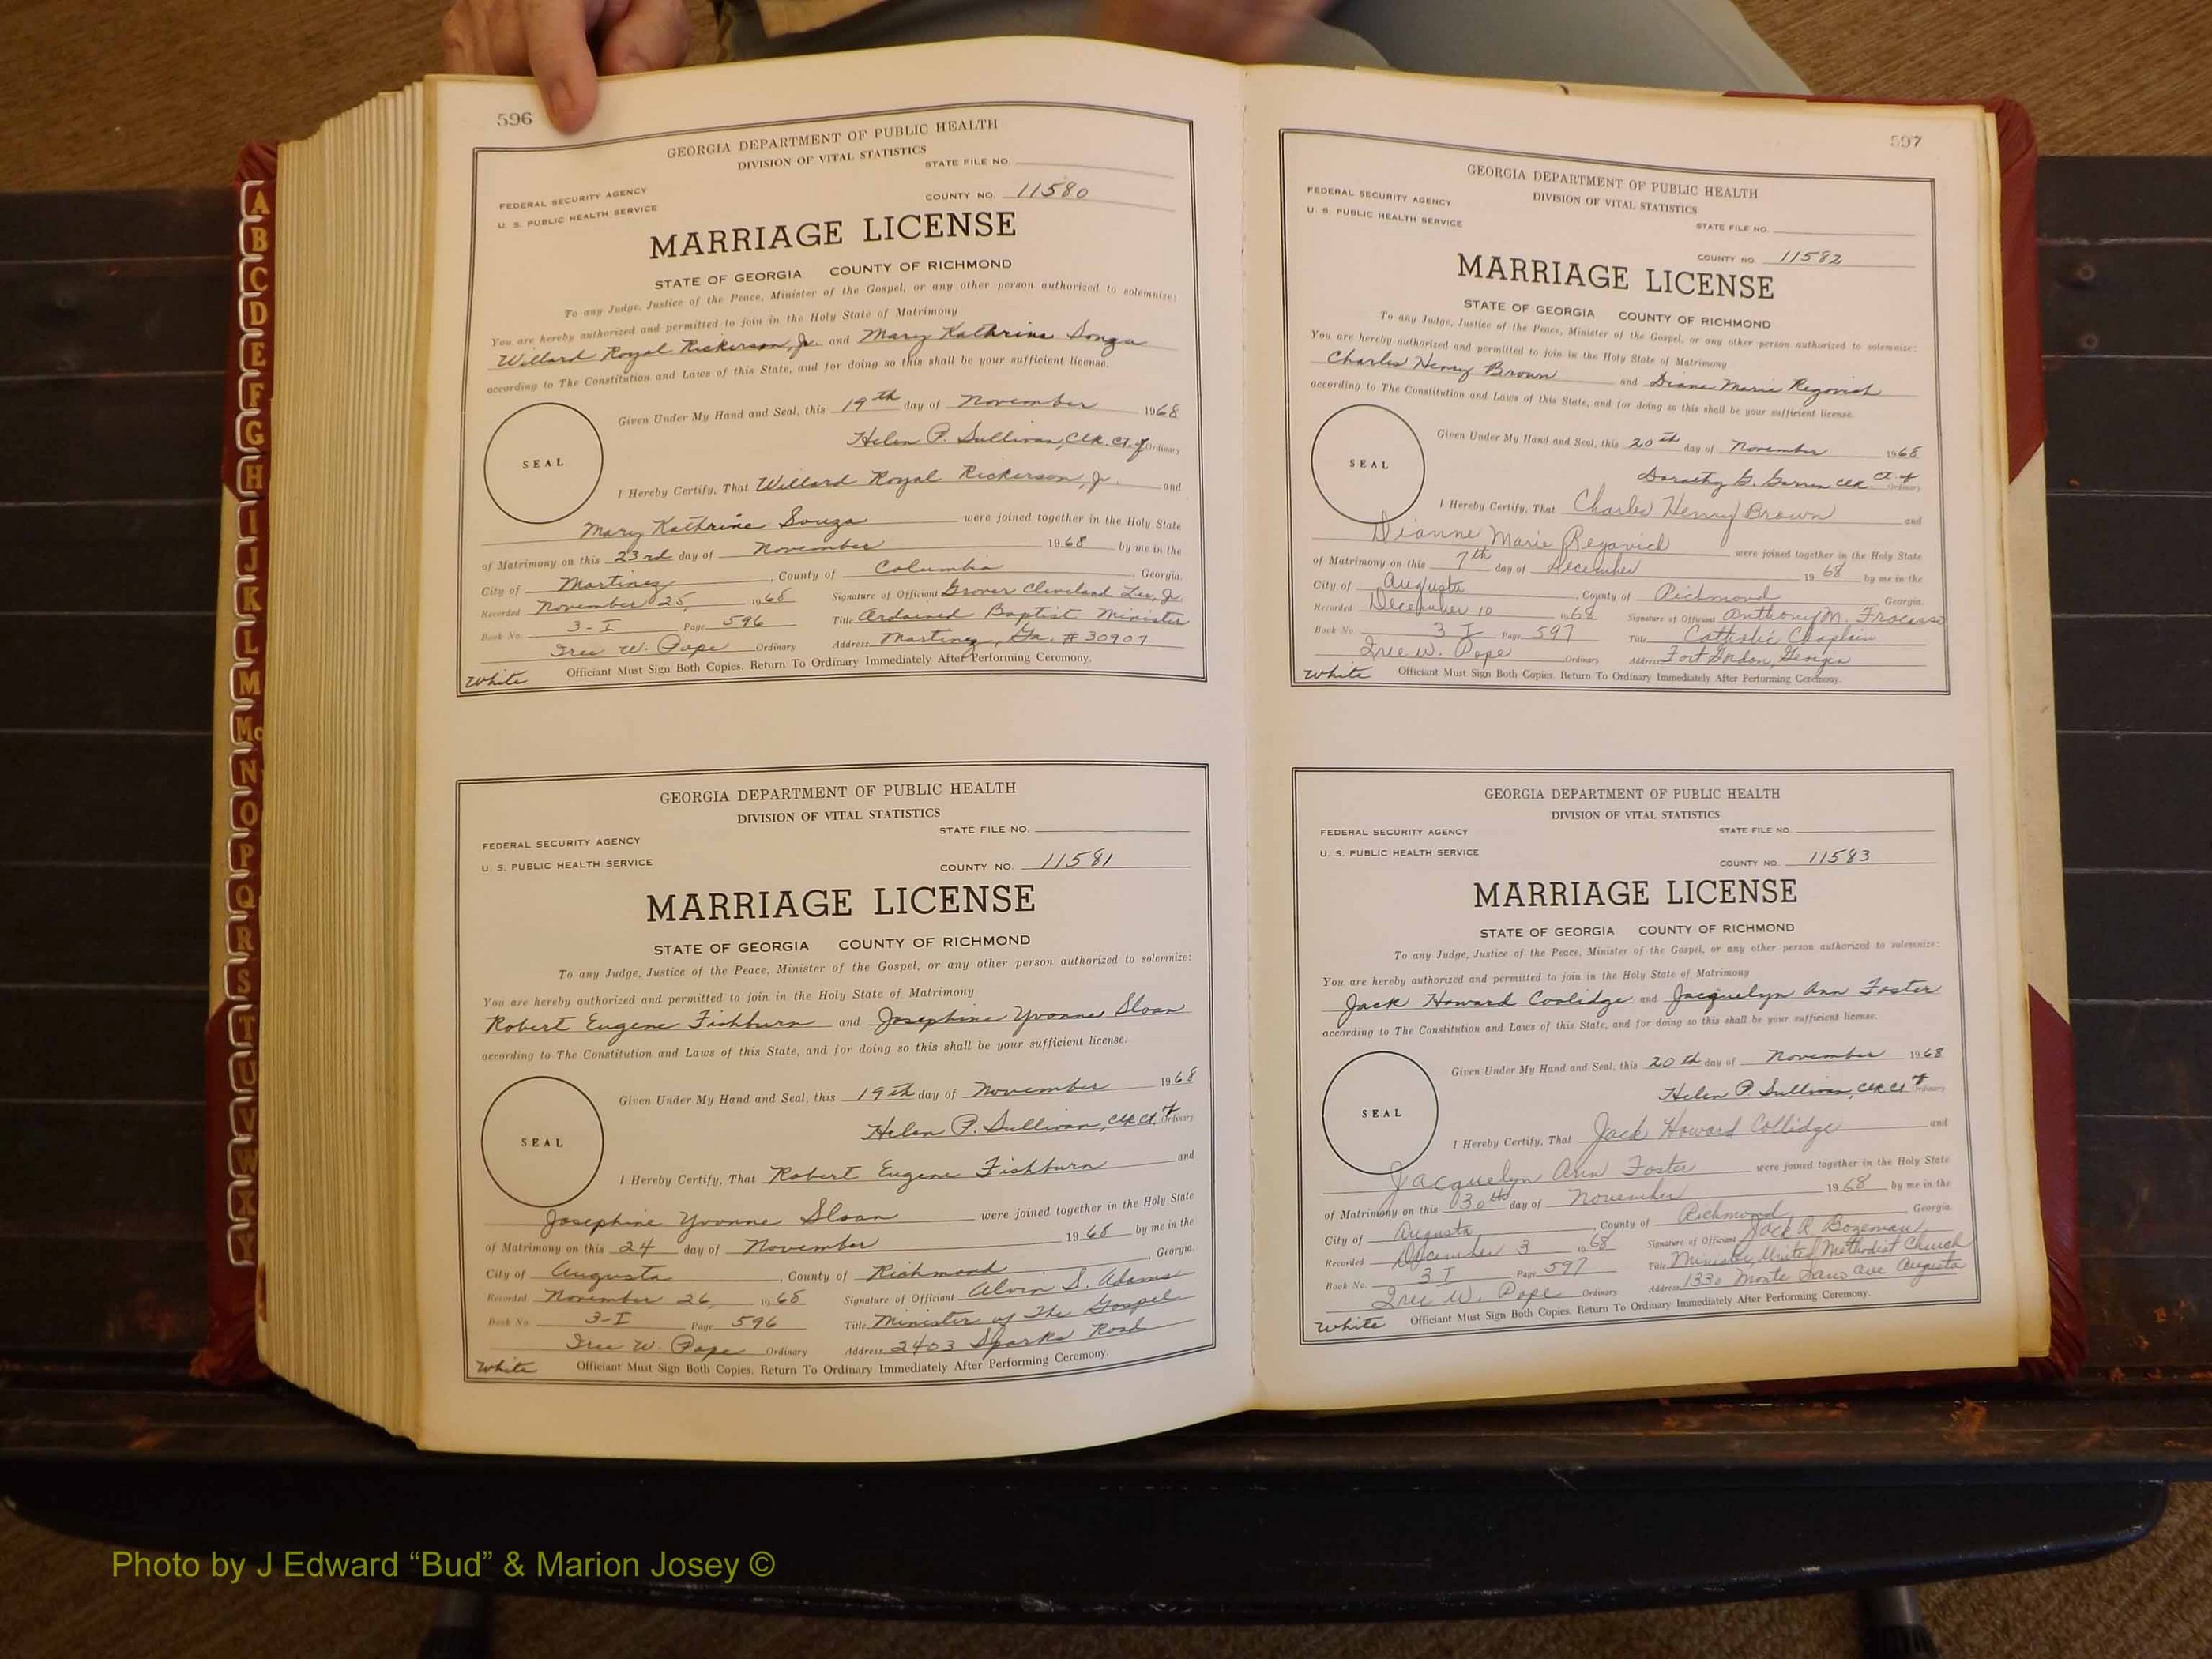 596
GEORGIA DEPARTMENT OF PUBLIC HEALTH
DIVISION OF VITAL STATISTICS
STATE FILE NO.
FEDERAL SECURITY AGENCY
U. S. PUBLIC HEALTH SERVICE
COUNTY NO. 11580
MARRIAGE LICENSE
STATE OF GEORGIA COUNTY OF RICHMOND
To any Judge, Justice of the Peace, Minister of the Gospel, or any other person authorized to solemnize:
You are hereby authorized and permitted to join in the Holy State of Matrimony
Willard Royal Rickerson, Jr. and Mary Kathrine Souza
according to The Constitution and Laws of this State, and for doing so this shall be your sufficient license.
Given Under My Hand and Seal, this 19th day of November 1968
Helen P. Sullivan, Clk. Ct. of Ordinary
SEAL
I Hereby Certify, That Willard Royal Rickerson, Jr. and
Mary Kathrine Souza were joined together in the Holy State
of Matrimony on this 23rd day of November 1968 by me in the
City of Martinez, County of Columbia, Georgia.
Recorded November 25, 1968 Signature of Officiant Grover Cleveland Lee, Jr.
Book No. 3-I Page 596 Title Ordained Baptist Minister
W. Pope Ordinary Address Martinez, Ga. # 30907
White Officiant Must Sign Both Copies. Return To Ordinary Immediately After Performing Ceremony.
GEORGIA DEPARTMENT OF PUBLIC HEALTH
DIVISION OF VITAL STATISTICS
STATE FILE NO.
FEDERAL SECURITY AGENCY
U. S. PUBLIC HEALTH SERVICE
COUNTY NO. 11581
MARRIAGE LICENSE
STATE OF GEORGIA COUNTY OF RICHMOND
To any Judge, Justice of the Peace, Minister of the Gospel, or any other person authorized to solemnize:
You are hereby authorized and permitted to join in the Holy State of Matrimony
Robert Eugene Fishburn and Josephine Yvonne Sloan
according to The Constitution and Laws of this State, and for doing so this shall be your sufficient license.
Given Under My Hand and Seal, this 19th day of November 1968
Helen P. Sullivan, Clk Ct. of Ordinary
SEAL
I Hereby Certify, That Robert Eugene Fishburn and
Josephine Yvonne Sloan were joined together in the Holy State
of Matrimony on this 24 day of November 1968 by me in the
City of Augusta, County of Richmond, Georgia.
Recorded November 26, 1968 Signature of Officiant Alvin S. Adams
Book No. 3-I Page 596 Title Minister of The Gospel
W. Pope Ordinary Address 2403 Sparks Road
White Officiant Must Sign Both Copies. Return To Ordinary Immediately After Performing Ceremony.
597
GEORGIA DEPARTMENT OF PUBLIC HEALTH
DIVISION OF VITAL STATISTICS
FEDERAL SECURITY AGENCY
U. S. PUBLIC HEALTH SERVICE
STATE FILE NO.
COUNTY NO. 11582
MARRIAGE LICENSE
STATE OF GEORGIA COUNTY OF RICHMOND
To any Judge, Justice of the Peace, Minister of the Gospel, or any other person authorized to solemnize:
You are hereby authorized and permitted to join in the Holy State of Matrimony
Charles Henry Brown and Diane Marie
according to The Constitution and Laws of this State, and for doing so this shall be your sufficient license.
Given Under My Hand and Seal, this 20th day of November 1968
Dorothy G. Clk Ct. of Ordinary
SEAL
I Hereby Certify, That Charles Henry Brown and
Dianne Marie were joined together in the Holy State
of Matrimony on this 7th day of December 1968 by me in the
City of Augusta, County of Richmond Georgia.
Recorded December 10 1968 Signature of Officiant Anthony M.
Book No. 3 I Page 597 Title Catholic Chaplain
W. Pope Ordinary Address Fort Gordon, Georgia
White Officiant Must Sign Both Copies. Return To Ordinary Immediately After Performing Ceremony.
GEORGIA DEPARTMENT OF PUBLIC HEALTH
DIVISION OF VITAL STATISTICS
FEDERAL SECURITY AGENCY
STATE FILE NO.
U. S. PUBLIC HEALTH SERVICE
COUNTY NO. 11583
MARRIAGE LICENSE
STATE OF GEORGIA COUNTY OF RICHMOND
To any Judge, Justice of the Peace, Minister of the Gospel, or any other person authorized to solemnize:
You are hereby authorized and permitted to join in the Holy State of Matrimony
Jack Howard Coolidge and Jacquelyn Ann Foster
according to The Constitution and Laws of this State, and for doing so this shall be your sufficient license.
Given Under My Hand and Seal, this 20th day of November 1968
Helen P. Sullivan, Clk Ct of Ordinary
SEAL
I Hereby Certify, That Jack Howard Collidge and
Jacquelyn Ann Foster were joined together in the Holy State
of Matrimony on this 30th day of November 1968 by me in the
City of Augusta, County of Richmond, Georgia.
Recorded December 3 1968 Signature of Officiant Jack R. Bozeman
Book No. 3 I Page 597 Title Minister, United Methodist Church
W. Pope Ordinary Address 1330 Monte Sano Ave Augusta
White Officiant Must Sign Both Copies. Return To Ordinary Immediately After Performing Ceremony.
A
B
C
D
E
F
G
H
I
J
K
L
M
Mc
N
O
P
Q
R
S
T
U
V
W
X
Y
Photo by J Edward “Bud” & Marion Josey ©